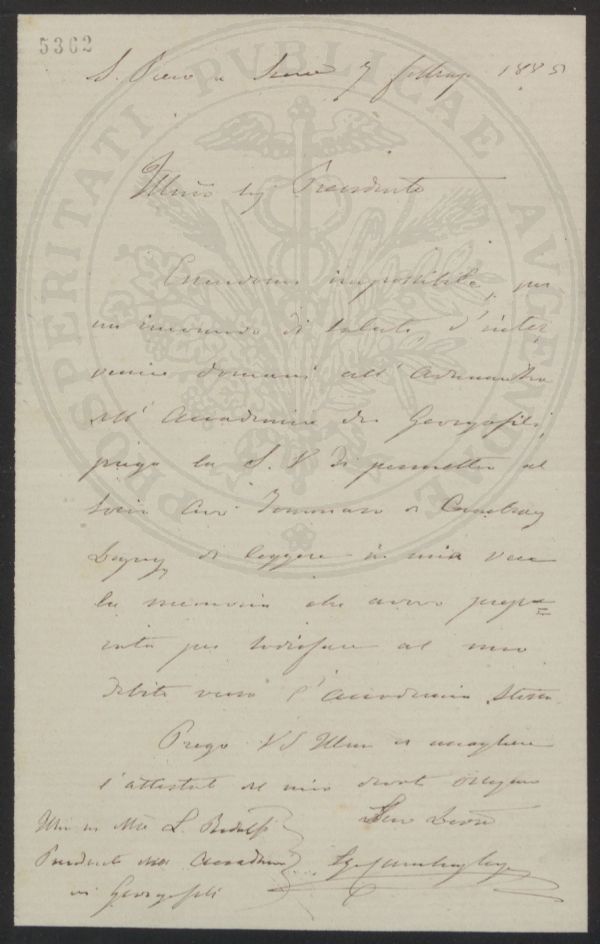 5362
S. Piero a Sieve 7 1885
Illmo Sig Presidente
Essendomi impossibile, per
un incomodo di salute, d'inter,
venire domani all' Adunanza
dell' Accademia dei Georgofili,
prego la S. V. di permettere al
Socio Cav Tommaso de Cambray
Digny di leggere in mia vece
la memoria che avevo prepa=
rata per sodisfare al mio
debito verso l'Accademia Stessa
Prego VS Illma di accogliere
l'attestato del mio devoto ossequio
Suo Devmo
Illmo Sig Mse L. Ridolfi
Presidente dell' Accademia
dei Georgofili
PROSPERITATI PUBLICAE AUGENDAE